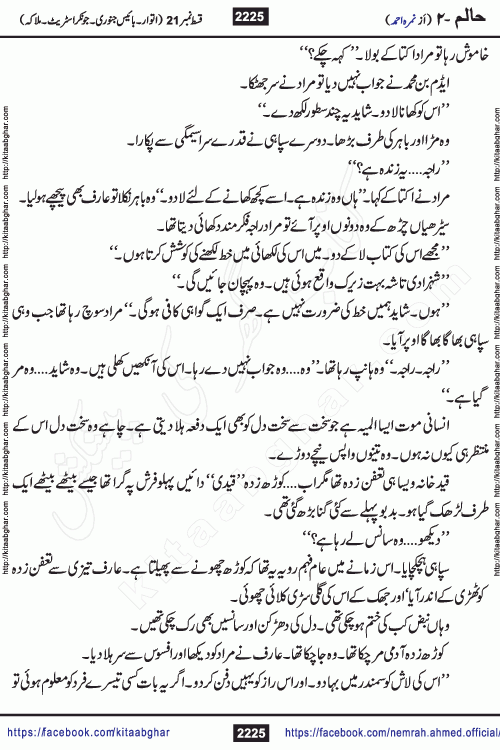 حالم ۔۲ (از نمرہ احمد)
2225
قسط نمبر 21 (اتوار۔ بائیس جنوری۔ جونکر اسٹریٹ۔ ملاکہ)
خاموش رہا تو مراد اکتا کے بولا۔ ’’کہہ چکے؟‘‘
ایڈم بن محمد نے جواب نہیں دیا تو مراد نے سر جھٹکا۔
’’اس کو کھانا لا دو۔ شاید یہ چند سطور لکھ دے۔‘‘
وہ مڑا اور باہر کی طرف بڑھا۔ دوسرے سپاہی نے قدرے سراسیمگی سے پکارا۔
’’راجہ.... یہ زندہ ہے؟‘‘
مراد نے اکتا کے کہا۔ ’’ہاں وہ زندہ ہے۔ اسے کچھ کھانے کے لئے لا دو۔‘‘ وہ باہر نکلا تو عارف بھی پیچھے ہو لیا۔
سیڑھیاں چڑھ کے وہ دونوں اوپر آئے تو مراد راجہ فکر مند دکھائی دیتا تھا۔
’’مجھے اس کی کتاب لا کے دو۔ میں اس کی لکھائی میں خط لکھنے کی کوشش کرتا ہوں۔‘‘
’’شہزادی تاشہ بہت زیرک واقع ہوئی ہیں۔ وہ پہچان جائیں گی۔‘‘
’’ہوں۔ شاید ہمیں خط کی ضرورت نہیں ہے۔ صرف ایک گواہی کافی ہو گی۔‘‘ مراد سوچ رہا تھا جب وہی
سپاہی بھاگا بھاگا اوپر آیا۔
’’راجہ۔ راجہ۔‘‘ وہ ہانپ رہا تھا۔ ’’وہ.... وہ جواب نہیں دے رہا۔ اس کی آنکھیں کھلی ہیں۔ وہ شاید.... وہ مر
گیا ہے۔‘‘
انسانی موت ایسا المیہ ہے جو سخت سے سخت دل کو بھی ایک دفعہ ہلا دیتی ہے۔ چاہے وہ سخت دل اس کے
منتظر ہی کیوں نہ ہوں۔ وہ تینوں واپس نیچے دوڑے۔
قید خانہ ویسا ہی تعفن زدہ تھا مگر اب.... کوڑھ زدہ ’’قیدی‘‘ دائیں پہلو فرش پہ گرا تھا جیسے بیٹھے بیٹھے ایک
طرف لڑھک گیا ہو۔ بدبو پہلے سے کئی گنا بڑھ گئی تھی۔
’’دیکھو.... وہ سانس لے رہا ہے؟‘‘
سپاہی ہچکچایا۔ اس زمانے میں عام فہم رویہ یہ تھا کہ کوڑھ چھونے سے پھیلتا ہے۔ عارف تیزی سے تعفن زدہ
کوٹھڑی کے اندر آیا اور جھک کے اس کی گلی سڑی کلائی چھوئی۔
وہاں نبض کب کی ختم ہو چکی تھی۔ دل کی دھڑکن اور سانسیں بھی رک چکی تھیں۔
کوڑھ زدہ آدمی مر چکا تھا۔ وہ جا چکا تھا۔ عارف نے مراد کو دیکھا اور افسوس سے سر ہلا دیا۔
’’اس کی لاش کو سمندر میں بہا دو۔ اور اس راز کو یہیں دفن کر دو۔ اگر یہ بات کسی تیسرے فرد کو معلوم ہوئی تو
http://kitaabghar.com http://kitaabghar.com http://kitaabghar.com http://kitaabghar.com http://kitaabghar.com
http://kitaabghar.com http://kitaabghar.com http://kitaabghar.com http://kitaabghar.com http://kitaabghar.com
https://facebook.com/kitaabghar
2225
https://facebook.com/nemrah.ahmed.official/